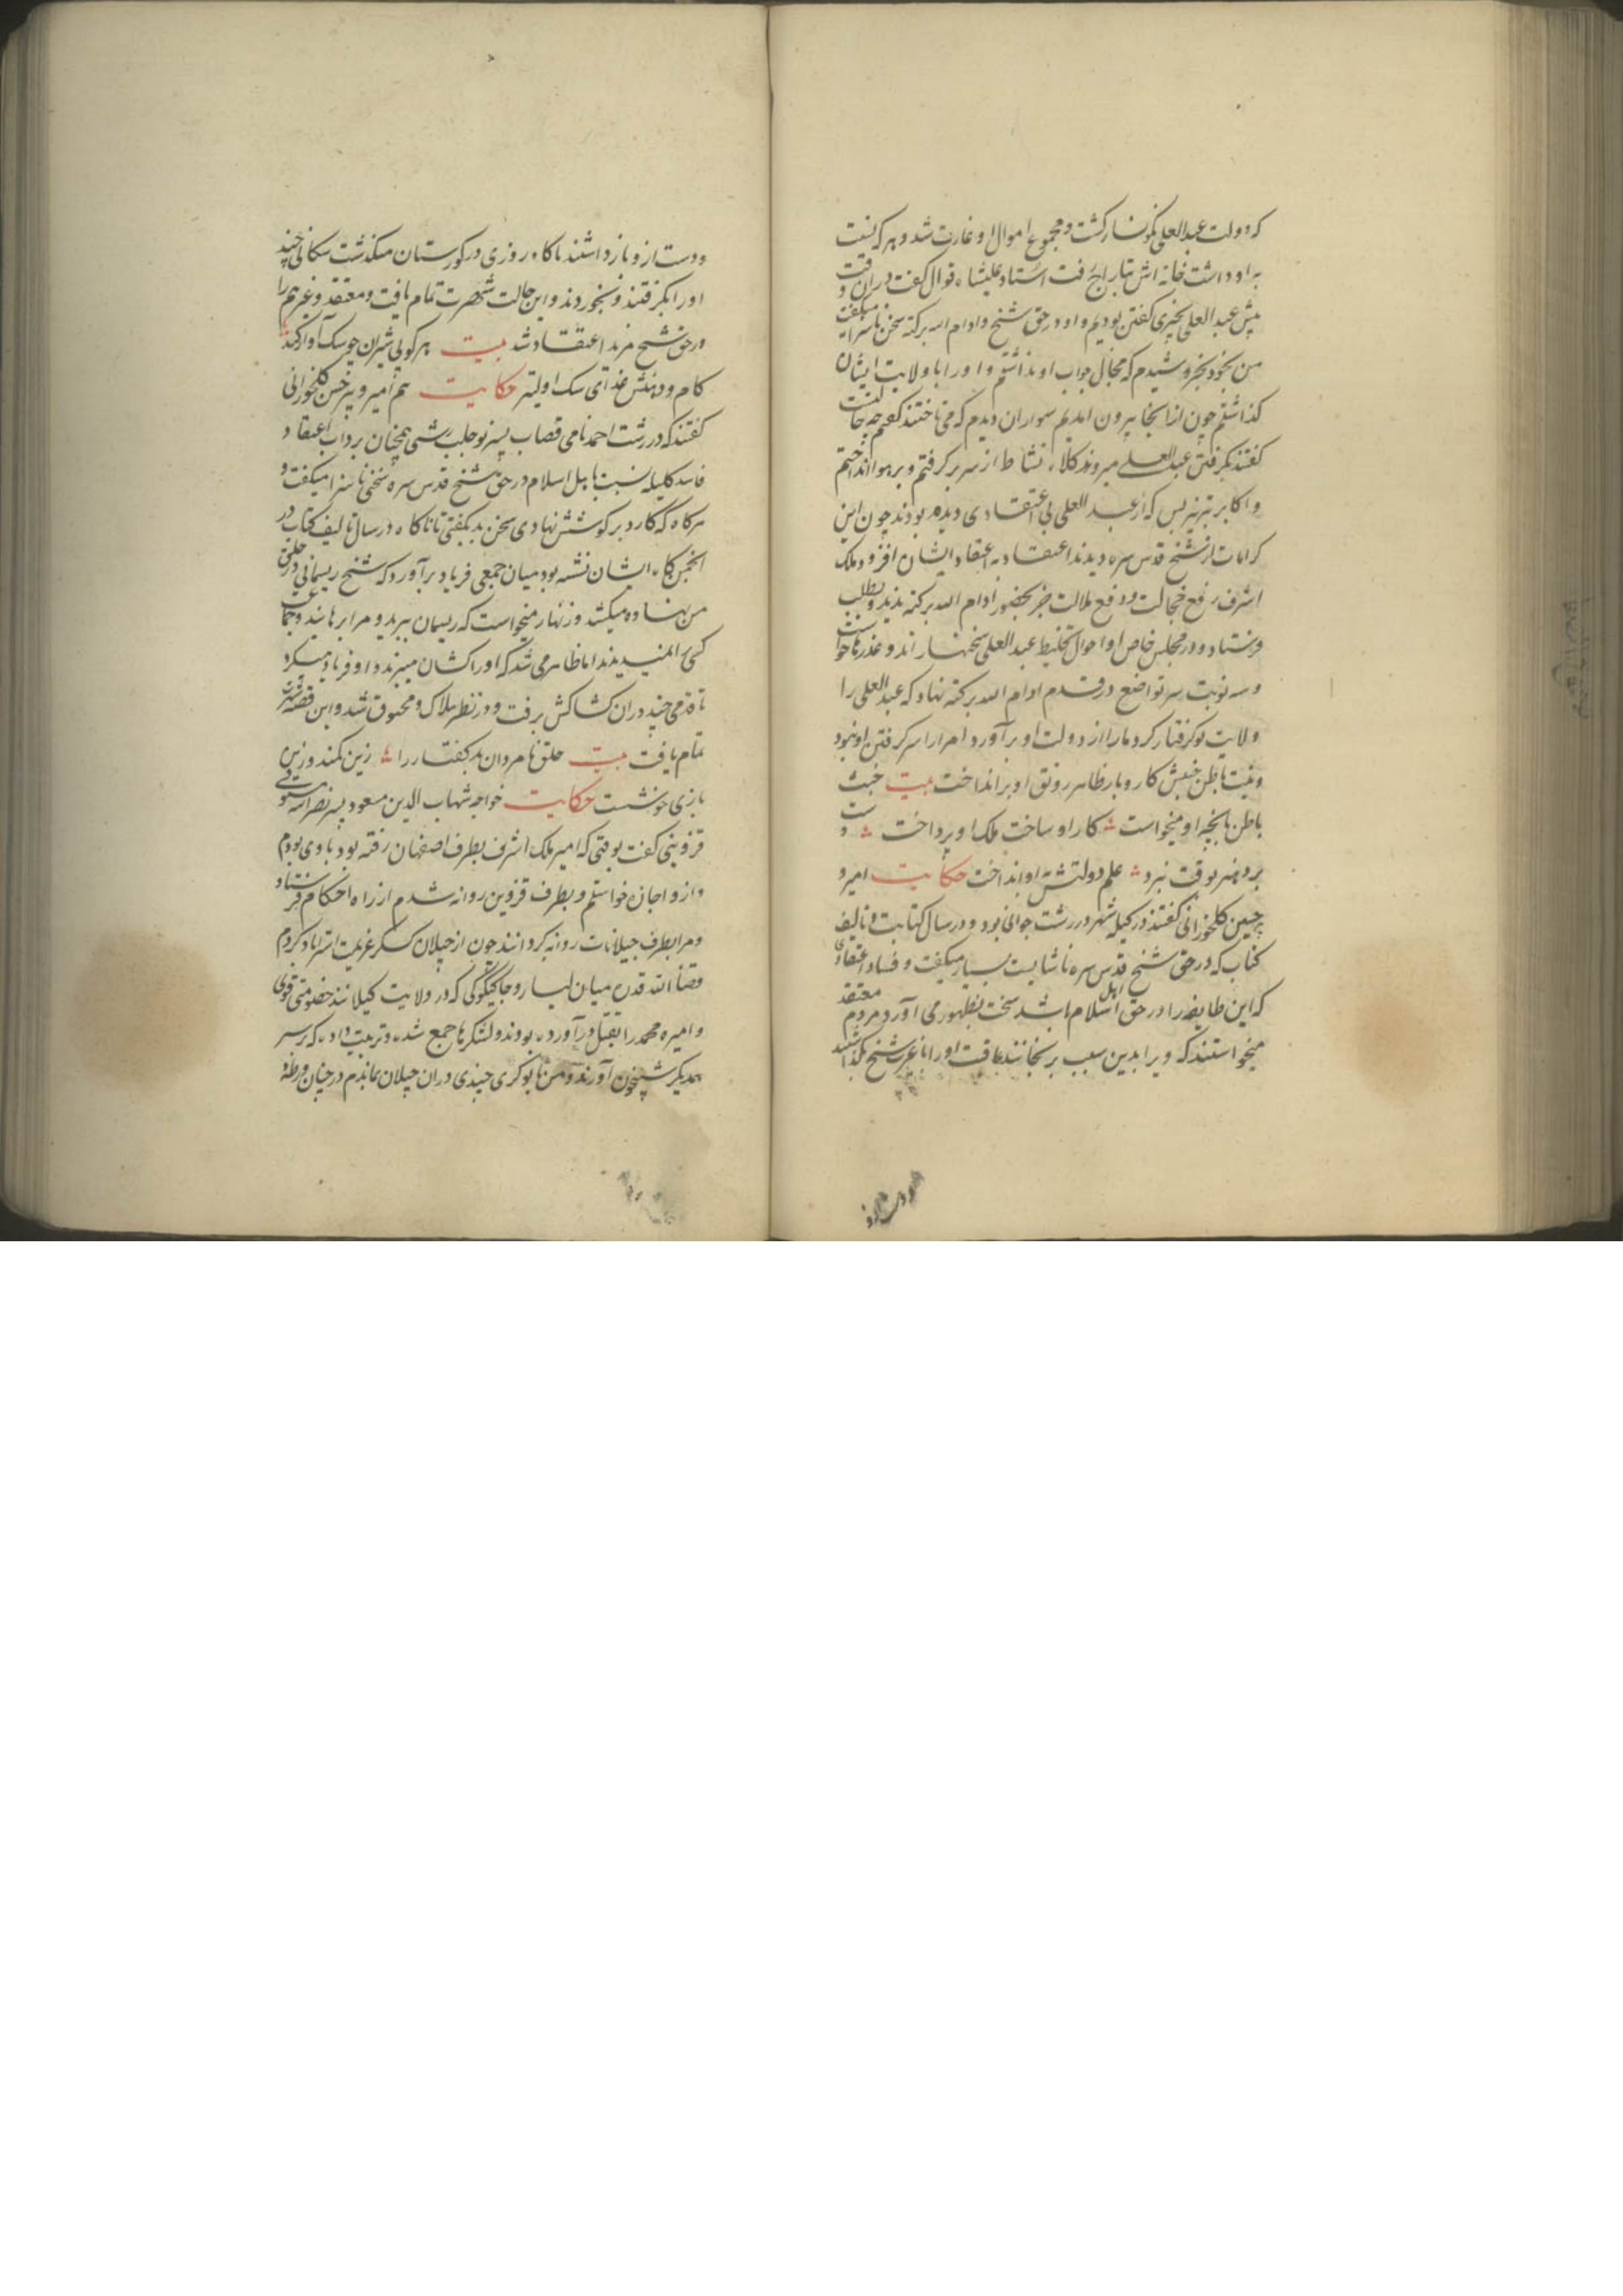 که دولت عبدالعلی نکونسار کشت و مجموع اموال او غارت شد و هر که نسبت
به او داشت خانه اش بتاراج رفت استاد علیشاه قوال کفت در ان وقت
پیش عبدالعلی بچیزی کفتن بودیم و او در حق شیخ و ادام الله برکته سخن ناسزا میکفت
من بخود بخروشیدم که مجال جواب او نداشتم و او را با ولایت ایشان
کذاشتم چون از انجا بیرون امدیم سواران دیدم که می تاختند کفتم چه حالتست
کفتند بکرفتن عبدالعلی میروند کلاه نشاط از سر برکرفتم و بر هوا انداختم
و اکابر تبریز پس که از عبدالعلی بی اعتقادی دیده بودند چون این
کرامات از شیخ قدس سره دیدند اعتقاد به اعتقاد ایشان افزود و ملک
اشرف رفع خجالت و دفع ملالت خبر بحضور ادام الله برکته بدید و بطلب
فرستاد و در مجلس خاص او احوال تخلیط عبدالعلی سخنها راند و عذرها خواست
و سه نوبت سر تواضع در قدم ادام الله برکته نهاد که عبدالعلی را
ولایت تو کرفتار کرد ما را از دولت او برآورد امرا را سر کرفتن او نبود
و نیت باطن خبیش کار و بار ظاهر رونق او برانداخت بیت خبث
باطن بانچه او میخواست کار او ساخت ملک او پرداخت
برد هنر بوقت نبرد علم دولتش او انداخت حکایت امیر و
حسن کلخورانی کفتند در کیله شهر در رشت جوانی بود و در سال کتابت و تالیف
کتاب که در حق شیخ قدس سره ناشایست بسیار میکفت و فساد اعتقادی
که این طایفه را در حق اهل اسلام باشد سخت بظهور می آورد مردم معتقد
میخواستند که ویرا بدین سبب برنجانند عاقبت او را با غیرت شیخ بکذاشتند
و دست از و
و دست از و باز داشتند ناکاه روزی در کورستان میکذشت سکانی چند
او را بکرفتند و بخوردند و این حالت شهرت تمام یافت و معتقد و غیرهم را
در حق شیخ مزید اعتقاد شد بیت هر کو پی شیران چو سک آواز کند
کام و دهنش غذای سک اولیتر حکایت هم امیر و پیر حسن کلخورانی
کفتند که در رشت احمد نامی قصاب پسر نو جلب رشتی همچنان بر داب اعتقاد
فاسد کلیله نسبت باهل اسلام در حق شیخ قدس سره سخن ناسزا میکفت و
هر کاه که کارد بر کوشش نهادی سخن بد بکفتی تا ناکاه در سال تالیف کتاب در
انجمن کاه ایشان نشسته بود میان جمعی فریاد برآورد که شیخ ریسمانی در حلق
من نهاده میکشد و زنهار میخواست که ریسمان ببرید و مرا برهانید و جماعت
کسی را نمیدیدند اما ظاهر می شد که او را کشان میبرند و او فریاد میکرد
تا قدمی چند در ان کشاکش برفت و در نظر هلاک و مخنوق شد و این قصه شهرت
تمام یافت بیت حلق نامردان بد کفتار را زین کمند و زین
بازی خوشست حکایت خواجه شهاب الدین مسعود پسر نصرالله مستوفی
قزوینی کفت بوقتی که امیر ملک اشرف بطرف اصفهان رفته بود با وی بودم
و از و اجازه خواستم و بطرف قزوین روانه شدم از راه احکام فرستاد
و مرا بطرف جیلانات روانه کردانند چون از جیلان کسکر عزیمت استراباد کردم
قضا الله قدره میان لیسار و جاکیکوکی که در ولایت کیلانند خصومتی قوی
و امیره محمد را بقتل درآورده بودند و لشکرها جمع شده و ترتیب داده که بر سر
همدیکر شبیخون آورند و من با نوکری چندی در ان جیلان بماندم در چنان ورطه